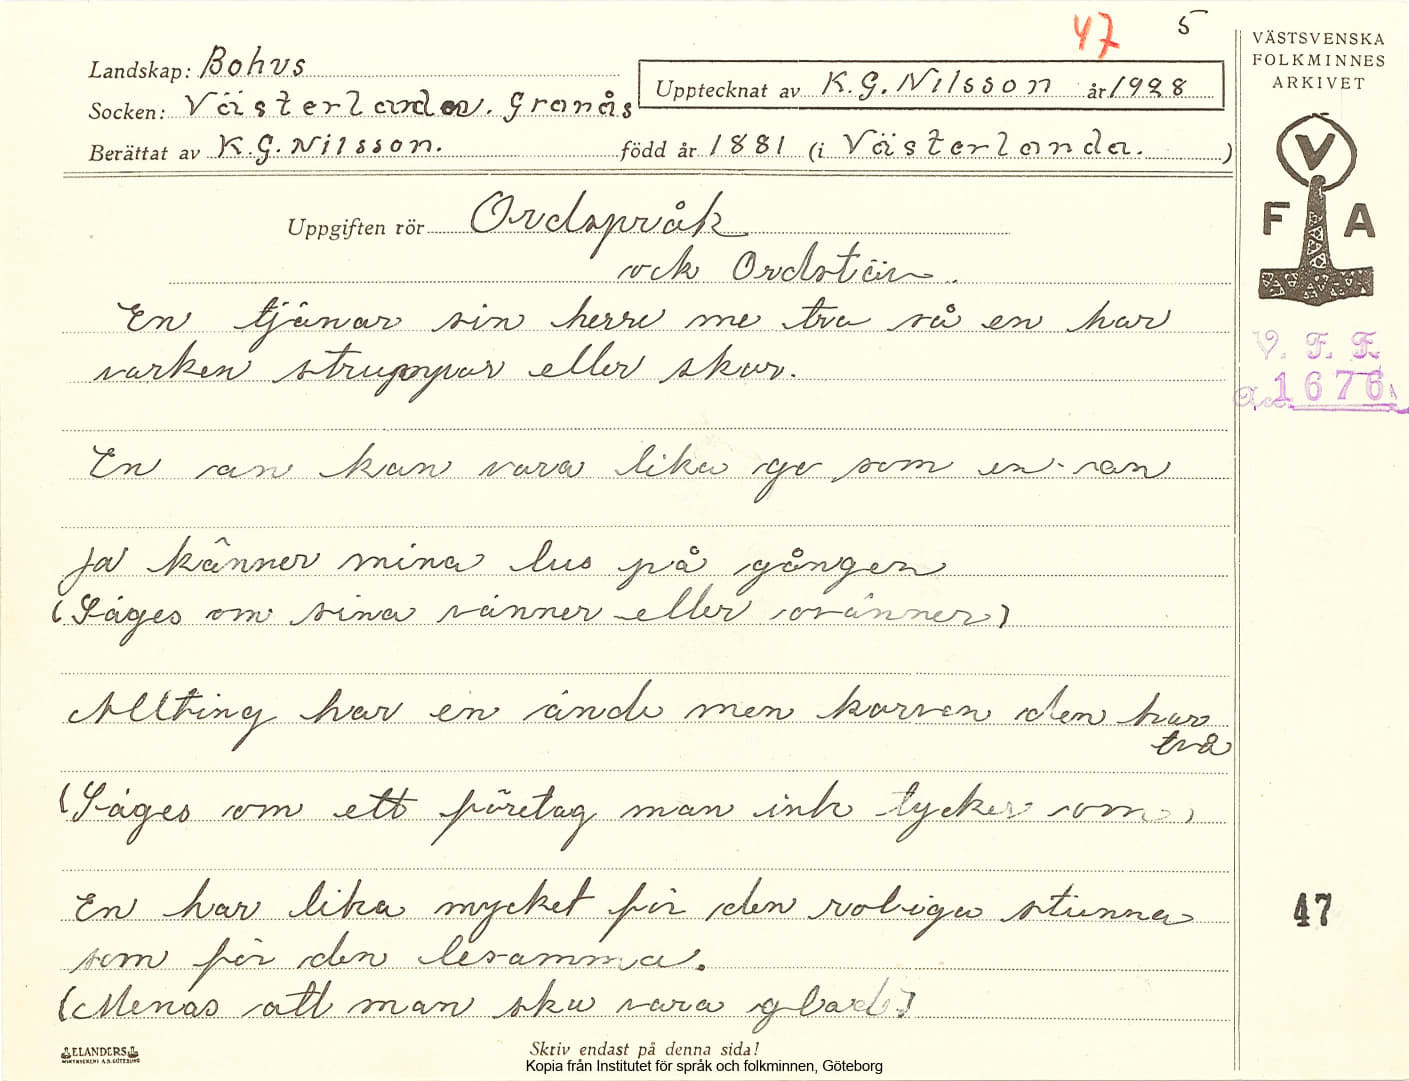 47 5
Landskap: Bohus
Socken: Västerlanda. Granås
Berättat av K.G. Nilsson.
Upptecknat av K.G. Nilsson år 1928
född år 1881 (i Västerlanda. )
VÄSTSVENSKA
FOLKMINNES
ARKIVET
V
F A
V. F. F.
1676
Uppgiften rör Ordspråk
ock Ordstäv.
En tjänar sin herre me tva så en har
varken struppar eller skor.
En an kan vara lika go som en ann
Ja känner mina lus på gången
(Säges om sina vänner eller ovänner)
Allting har en ände men korven den har
två
(Säges om ett företag man inte tycker om)
En har lika mycket för den roliga stunna
som för den lesamma.
(Menas att man ska vara glad.)
47
ELANDERS
Skriv endast på denna sida!
Kopia från Institutet för språk och folkminnen, Göteborg